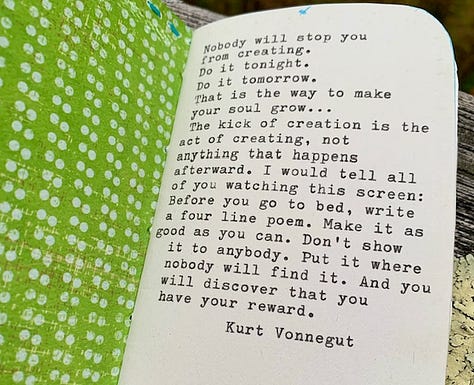 Nobody will stop you
from creating.
Do it tonight.
Do it tomorrow.
That is the way to make
your soul grow...
The kick of creation is the
act of creating, not
anything that happens
afterward. I would tell all
of you watching this screen:
Before you go to bed, write
a four line poem. Make it as
good as you can. Don't show
it to anybody. Put it where
nobody will find it. And you
will discover that you
have your reward.
Kurt Vonnegut